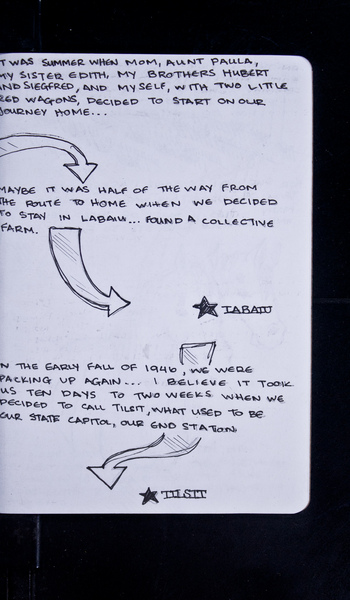 T WAS SUMMER WHEN MOM, AUNT PAULA,
MY SISTER EDITH, MY BROTHERS HUBERT
AND SIEGFRED, AND MYSELF, WITH TWO LITTLE
RED WAGONS, DECIDED TO START ON OUR
JOURNEY HOME...
MAYBE IT WAS HALF OF THE WAY FROM
THE ROUTE TO HOME WHEN WE DECIDED
TO STAY IN LABAIU... FOUND A COLLECTIVE
FARM.
LABAIU
N THE EARLY FALL OF 1946, WE WERE
PACKING UP AGAIN... I BELIEVE IT TOOK
US TEN DAYS TO TWO WEEKS WHEN WE
DECIDED TO CALL TILSIT, WHAT USED TO BE
OUR STATE CAPITOL, OUR END STATION.
TILSIT